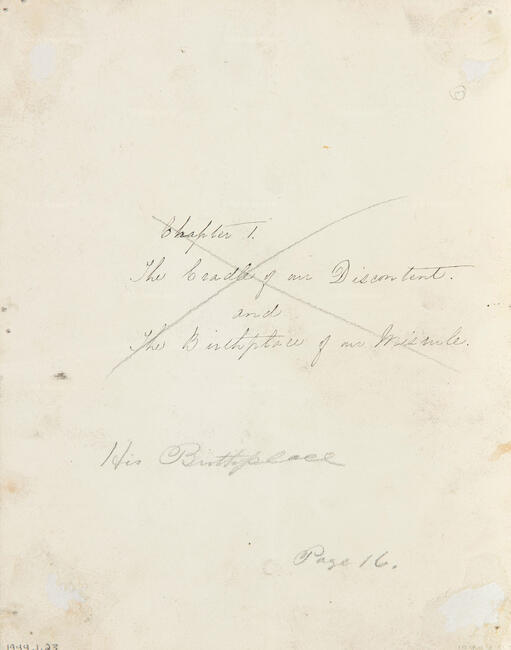 Chapter 1.
The Cradle of our Discontent.
and
The Birthplace of our Misrule.
His Birthplace
Page 16.
1944.1.23